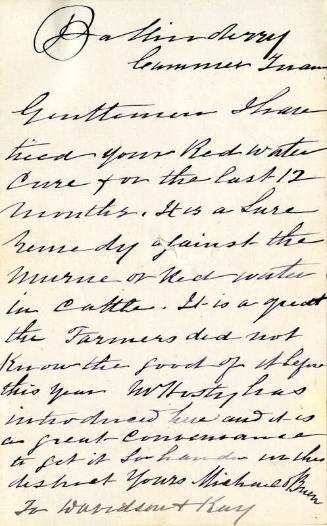 Ballinderry
Cummer Tuam
Gentlemen I have
tried your Red Water
Cure for the last 12
months. It is a Sure
Remedy against the
Murne or Red water
in Cattle. It is a great
the Farmers did not
Know the good of it before
this year Mr Hosty has
introduced here and it is
a great Convenience
to get it So handy in this
district Yours Michael
To Davidson & Kay